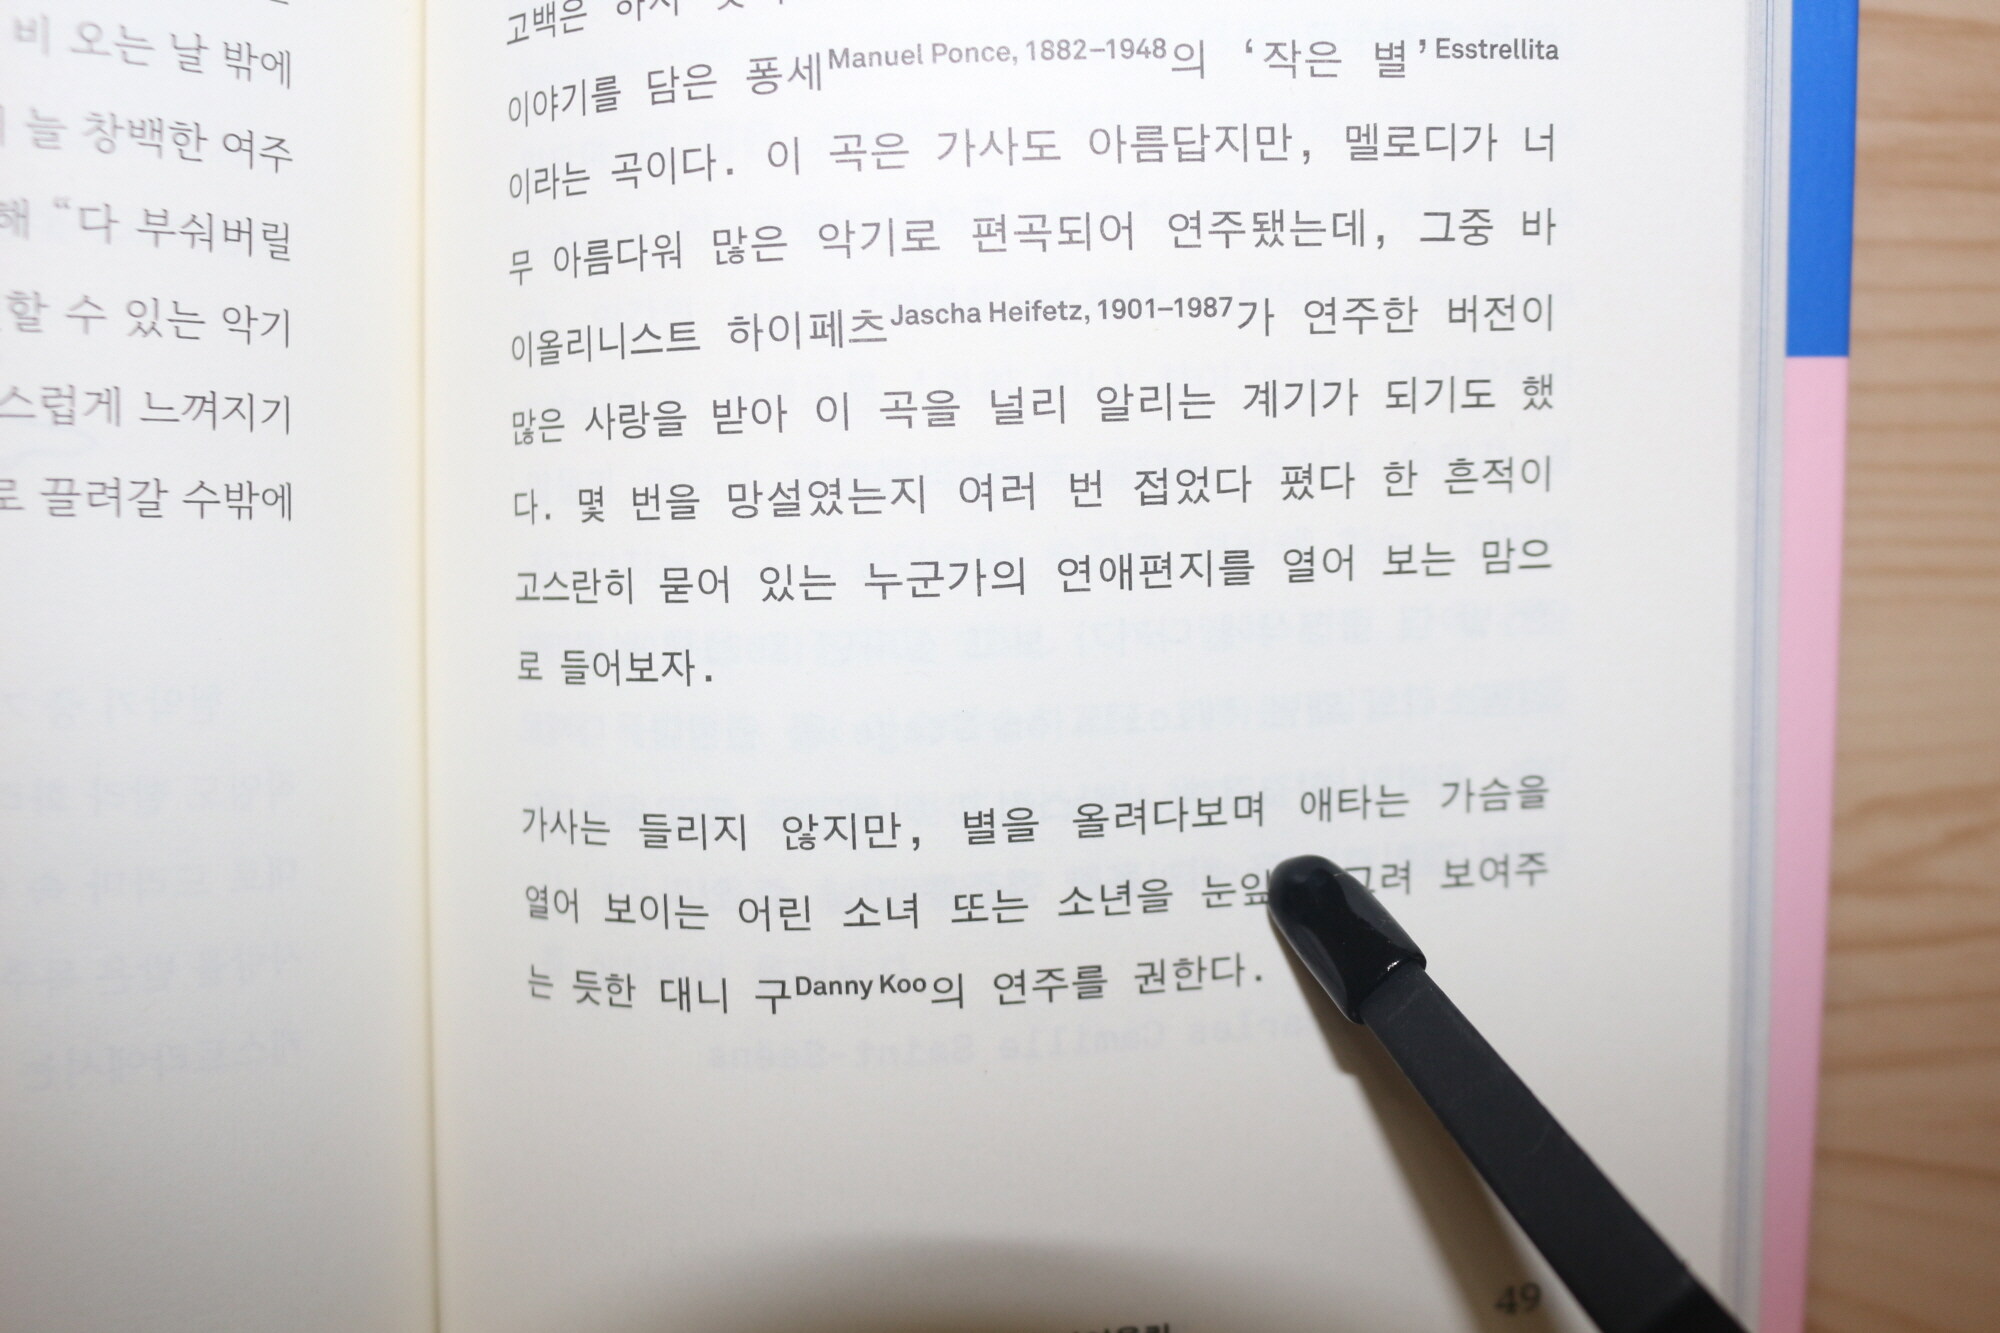 비 오는 날 밖에
늘 창백한 여주
해 “다 부숴버릴
할 수 있는 악기
스럽게 느껴지기
로 끌려갈 수밖에
고백은 하지
이야기를 담은 퐁세Manuel Ponce, 1882–1948의 ‘작은 별’Esstrellita
이라는 곡이다. 이 곡은 가사도 아름답지만, 멜로디가 너
무 아름다워 많은 악기로 편곡되어 연주됐는데, 그중 바
이올리니스트 하이페츠Jascha Heifetz, 1901–1987가 연주한 버전이
많은 사랑을 받아 이 곡을 널리 알리는 계기가 되기도 했
다. 몇 번을 망설였는지 여러 번 접었다 폈다 한 흔적이
고스란히 묻어 있는 누군가의 연애편지를 열어 보는 맘으
로 들어보자.
가사는 들리지 않지만, 별을 올려다보며 애타는 가슴을
열어 보이는 어린 소녀 또는 소년을 눈앞 그려 보여주
는 듯한 대니 구Danny Koo의 연주를 권한다.
49